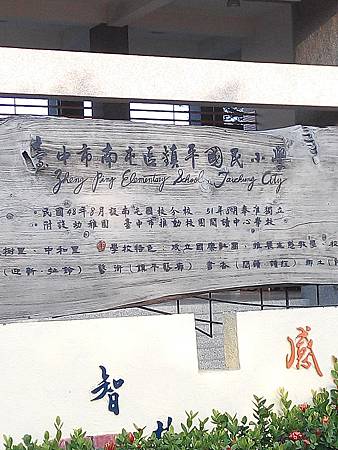 臺中市南屯區鎮平國民小學
Zheng Ping Elementary School, Taichung City
·民國48年8月設南屯國校分校 ·51年8月奉准獨立
·附設幼稚園 ·臺中市推動校園閱讀中心學校
樹里、中和里 學校特色:成立國樂社團,推展直笛教學
(迎新·社鈴) 藝術(鎮平藝廊) 書香(閱讀
智
感